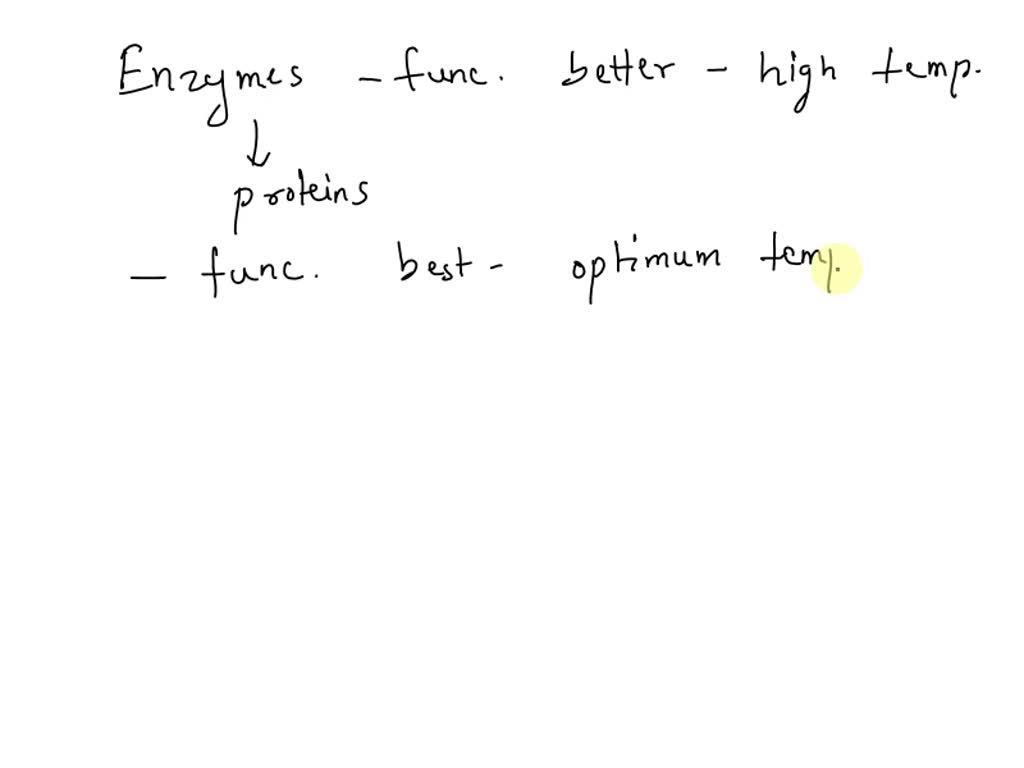 Enzymes - func. better - high temp.
↓
proteins
- func. best - optimum temp.